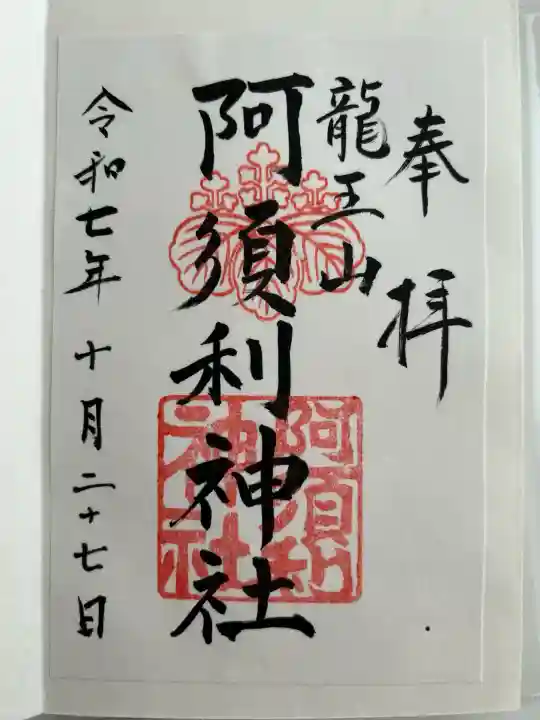 奉拝
龍王山
阿須利神社
阿須利
神社
令和七年十月二十七日